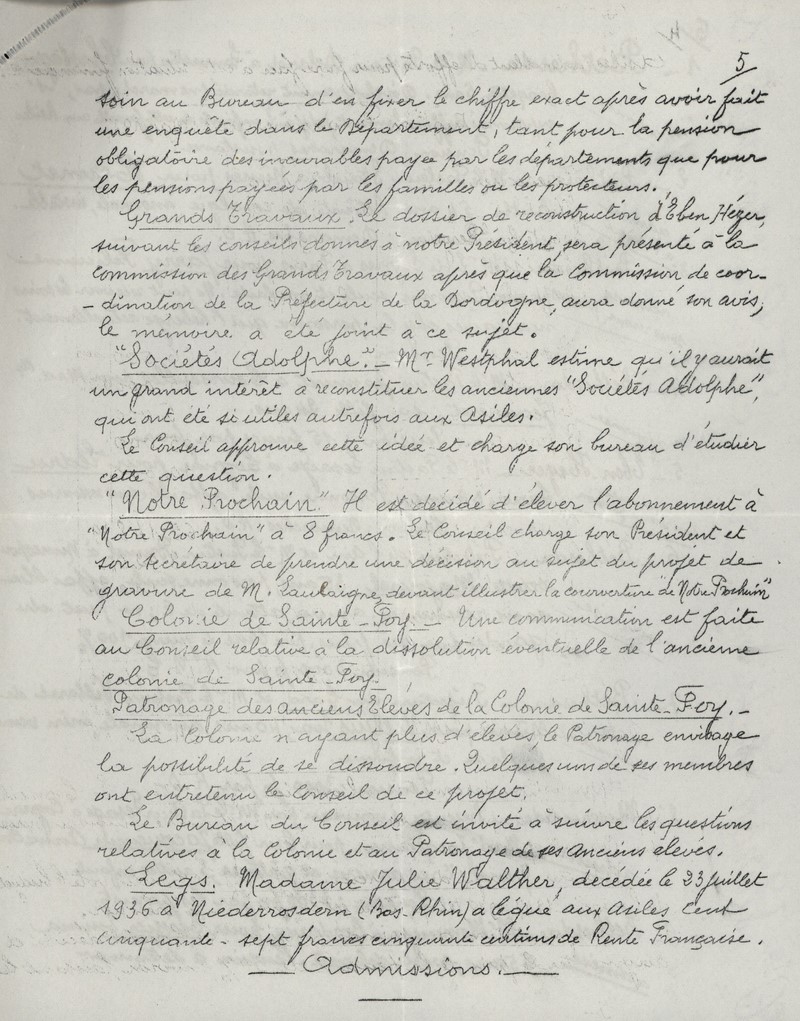 5
soin au Bureau d'en fixer le chiffre exact après avoir fait
une enquête dans le Département, tant pour la pension
obligatoire des incurables payée par les départements que pour
les pensions payées par les familles ou les protecteurs.
Grands Travaux. Le dossier de reconstruction d'Eben, Hézer,
suivant les conseils donnés à notre Président, sera présenté à la
commission des Grands Travaux après que la Commission de coor-
-dination de la Préfecture de la Dordogne, aura donné son avis;
le mémoire a été joint à ce sujet.
"Sociétés Adolphe". - Mr Westphal estime qu'il y aurait
un grand intérêt à reconstituer les anciennes "Sociétés Adolphe",
qui ont été si utiles autrefois aux Asiles.
Le Conseil approuve cette idée et charge son bureau d'étudier
cette question.
"Notre Prochain" Il est décidé d'élever l'abonnement à
"Notre Prochain" à 8 francs. Le Conseil charge son Président et
son secrétaire de prendre une décision au sujet du projet de
gravure de M. devant illustrer la couverture de "Notre Prochain"
Colonie de Sainte-Foy. - Une communication est faite
au Conseil relative à la dissolution éventuelle de l'ancienne
colonie de Sainte-Foy.
Patronage des anciens Elèves de la Colonie de Sainte-Foy. -
La Colonie n'ayant plus d'élèves, le Patronage envisage
la possibilité de se dissoudre. Quelques uns de ses membres
ont entretenu le Conseil de ce projet.
Le Bureau du Conseil est invité à suivre les questions
relatives à la Colonie et au Patronage de ses anciens élèves.
Legs. Madame Julie Walther, décédée le 23 juillet
1936 à Niederrosdern (Bas-Rhin) a légué aux Asiles cent
cinquante-sept francs cinquante centimes de Rente Française.
Admissions.